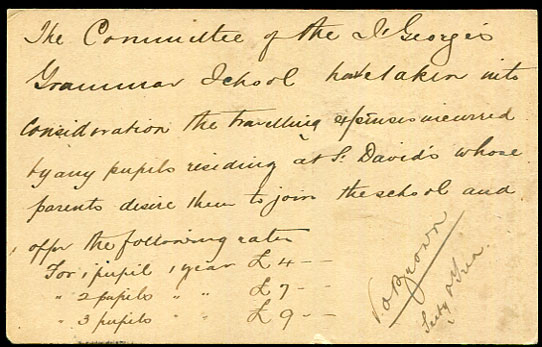 The Committee of the St George's
Grammar School have taken into
consideration the travelling expenses incurred
by any pupils residing at St. David's whose
parents desire them to join the school and
offer the following rates
For 1 pupil 1 year £4 --
" 2 pupils " " £7 --
" 3 pupils " " £9 --
Brown
Secty & Trea